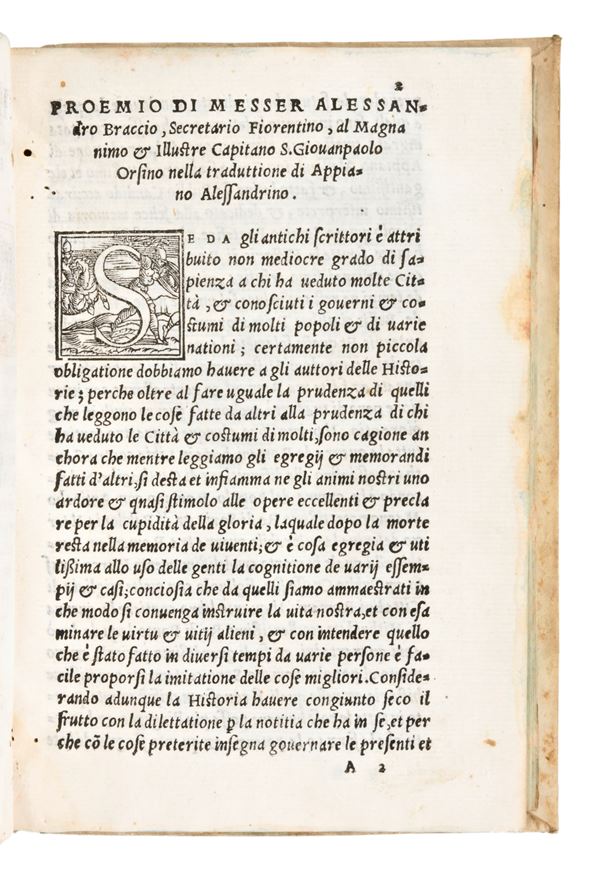 2
PROEMIO DI MESSER ALESSAN-
dro Braccio, Secretario Fiorentino, al Magna
nimo & Illustre Capitano S. Giouanpaolo
Orsino nella traduttione di Appia-
no Alessandrino.
SE DA gli antichi scrittori è attri
buito non mediocre grado di sa-
pienza a chi ha ueduto molte Cit-
tà, & conosciuti i gouerni & co-
stumi di molti popoli & di uarie
nationi; certamente non piccola
obligatione dobbiamo hauere a gli auttori delle Histo-
rie; perche oltre al fare uguale la prudenza di quelli
che leggono le cose fatte da altri alla prudenza di chi
ha ueduto le Città & costumi di molti, sono cagione an
chora che mentre leggiamo gli egregij & memorandi
fatti d'altri, si desta et infiamma ne gli animi nostri uno
ardore & qnasi stimolo alle opere eccellenti & precla
re per la cupidità della gloria, laquale dopo la morte
resta nella memoria de uiuenti; & è cosa egregia & uti
lißima allo uso delle genti la cognitione de uarij essem-
pij & casi; conciosia che da quelli siamo ammaestrati in
che modo si conuenga instruire la uita nostra, et con esa
minare le uirtu & uitij alieni, & con intendere quello
che è stato fatto in diuersi tempi da uarie persone è fa-
cile proporsi la imitatione delle cose migliori. Conside-
rando adunque la Historia hauere congiunto seco il
frutto con la dilettatione ꝑ la notitia che ha in se, et per
che cõ le cose preterite insegna gouernare le presenti et
A 2